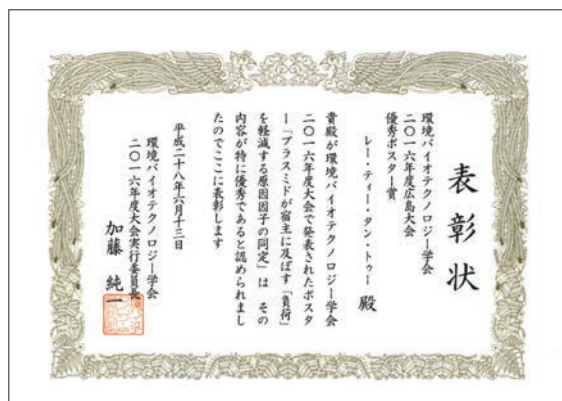 表彰状
環境バイオテクノロジー学会
二〇一六年度広島大会
優秀ポスター賞
レー・ティー・タン・トゥー 殿
貴殿が環境バイオテクノロジー学会
二〇一六年度大会で発表されたポスタ
ー「プラスミドが宿主に及ぼす「負荷」
を軽減する原因因子の同定」は その
内容が特に優秀であると認められまし
たのでここに表彰します
平成二十八年六月十三日
環境バイオテクノロジー学会
二〇一六年度大会実行委員長
加藤 純一